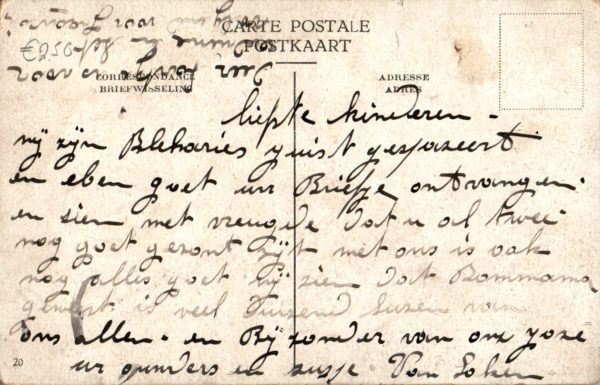 CARTE POSTALE
POSTKAART
€2,50
CORRESPONDANCE
BRIEFWISSELING
ADRESSE
ADRES
liefste kinderen -
wij zijn Bleharies juist gespazeert
en eben goet ur Briefje ontvangen.
en zien met vreugde dat u al twee
nog goet gezont zijt met ons is ook
nog alles goet wij zien dat Bommama
geweest is veel duizend kuzen van
ons allen. en Bijzonder van onz joze
ur ouders en zusje Van Loken
20